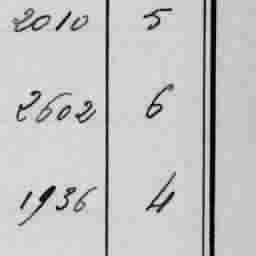 2010 5
2602 6
1936 4